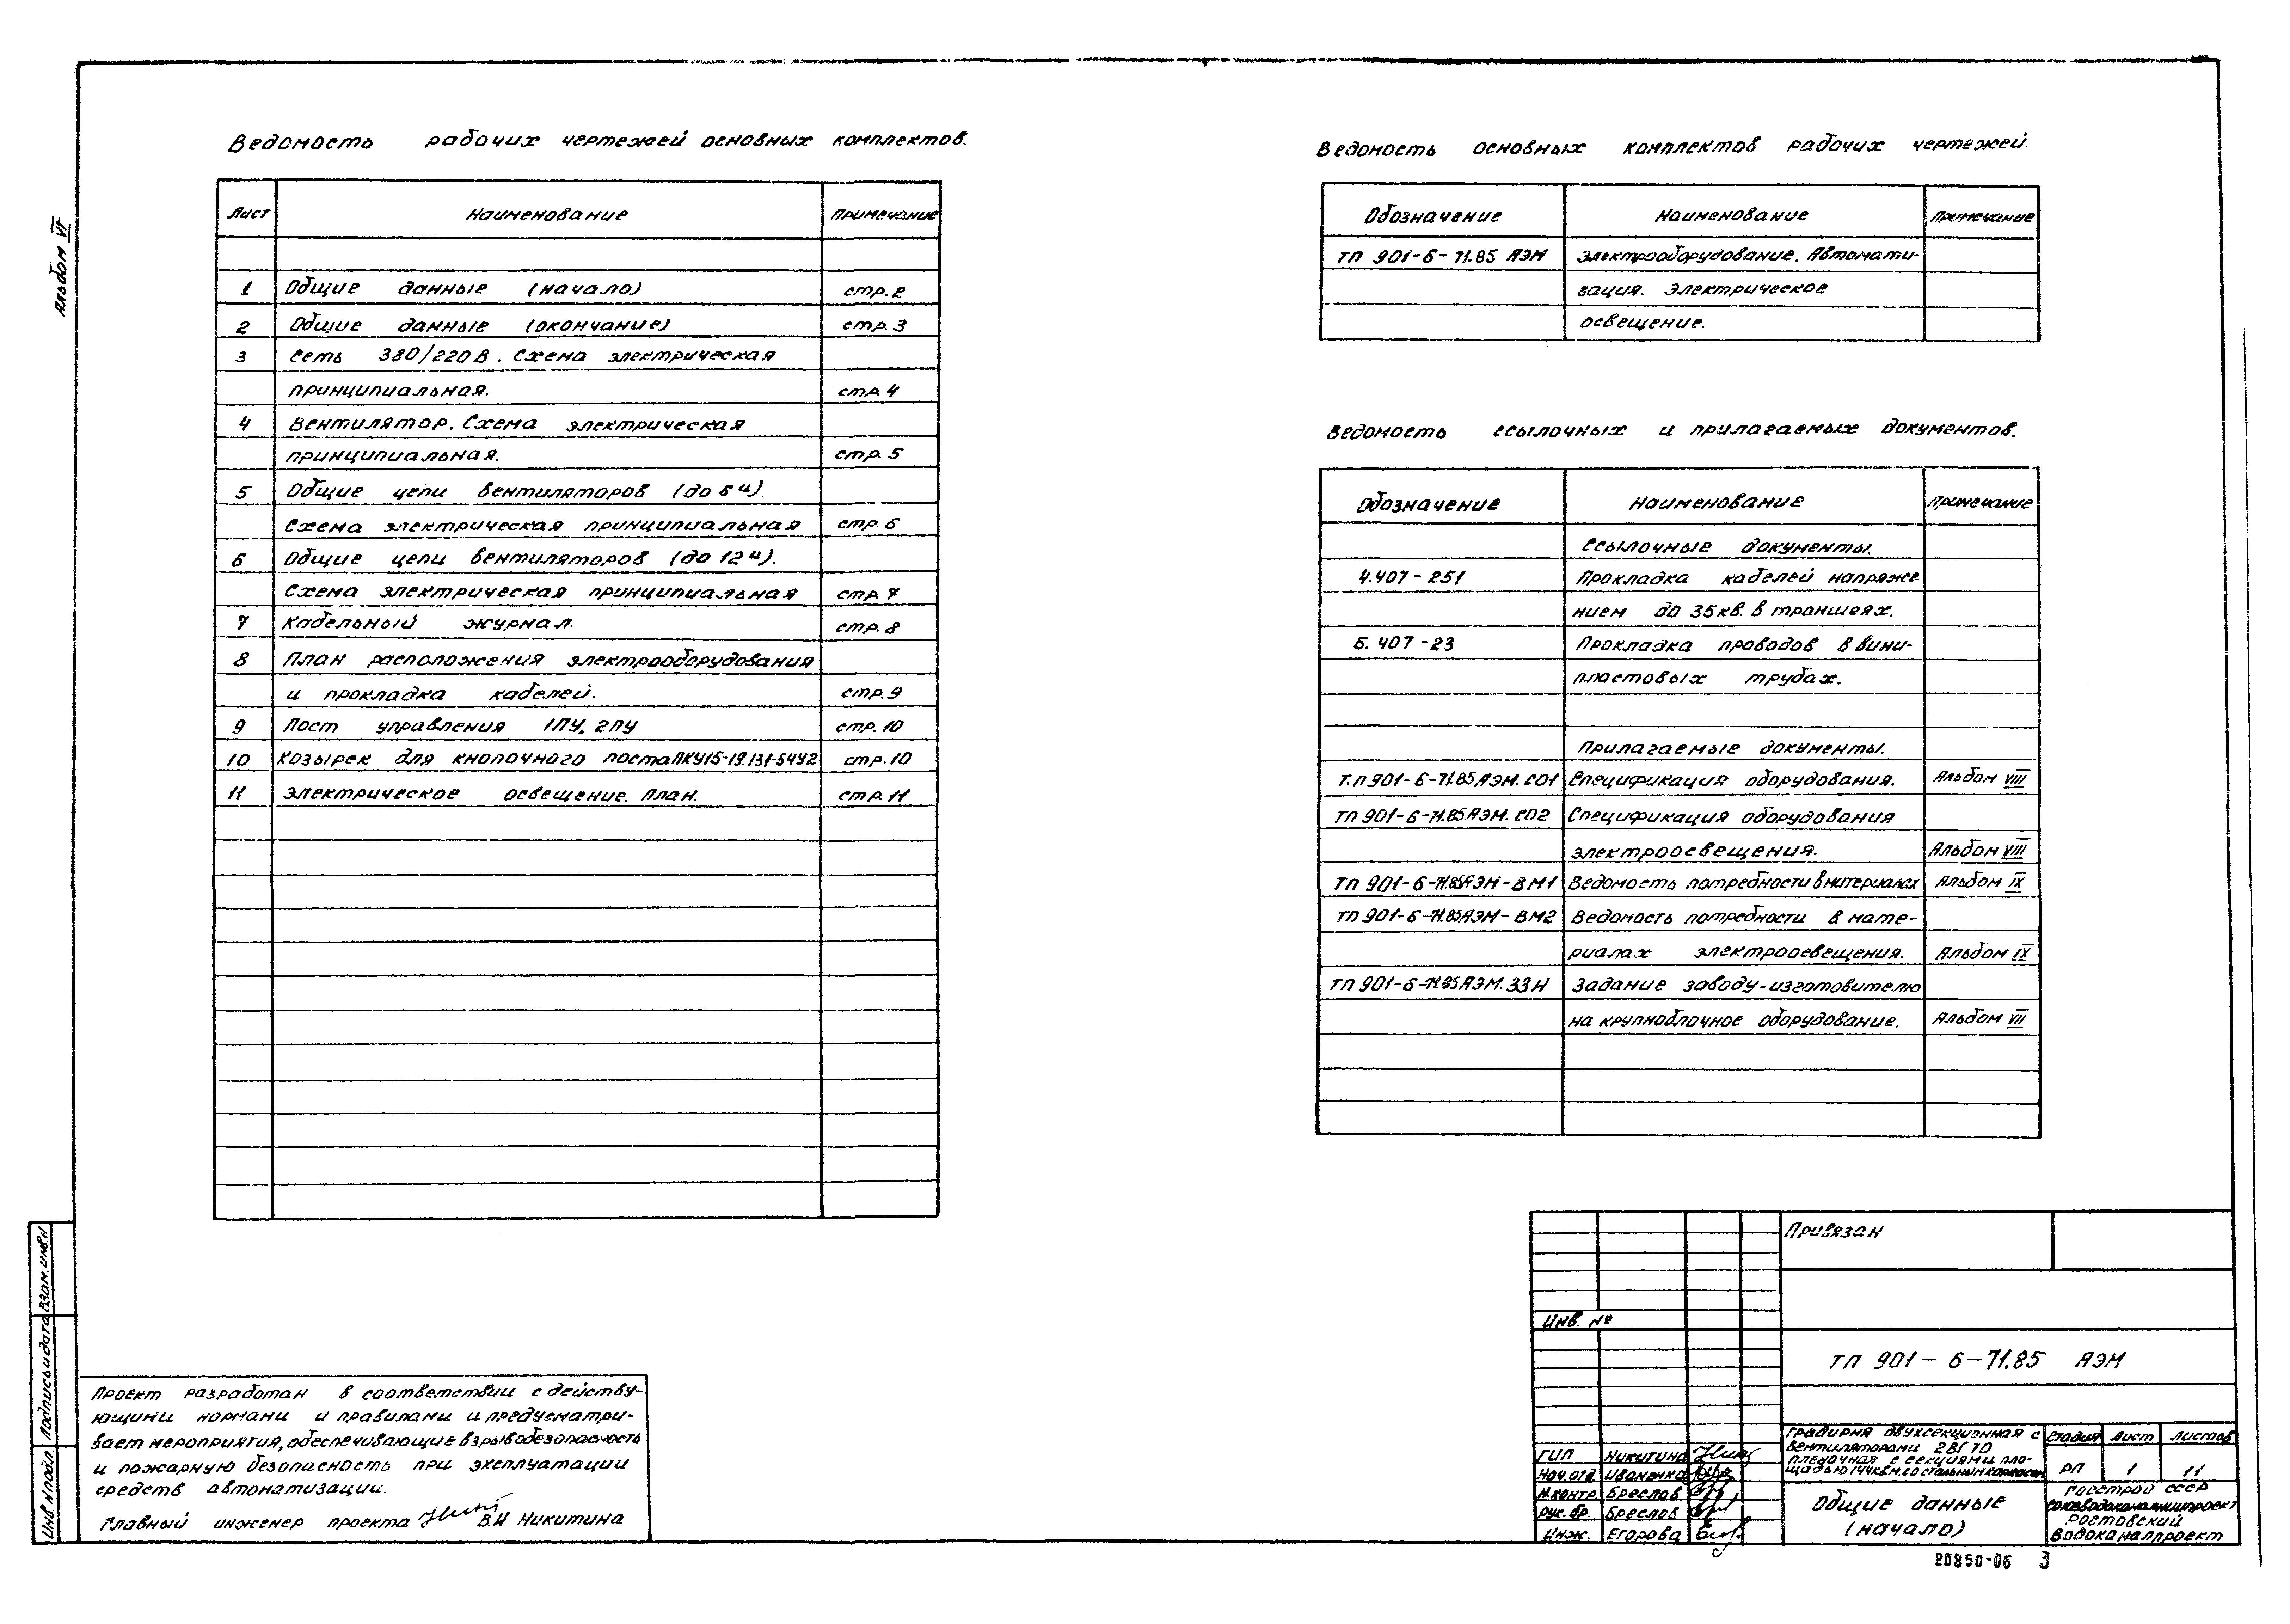 Альбом VI
Ведомость рабочих чертежей основных комплектов.
Лист Наименование Примечание
1 Общие данные (начало) стр. 2
2 Общие данные (окончание) стр. 3
3 Сеть 380/220 В. Схема электрическая
принципиальная. стр. 4
4 Вентилятор. Схема электрическая
принципиальная. стр. 5
5 Общие цепи вентиляторов (до 6 ч)
Схема электрическая принципиальная стр. 6
6 Общие цепи вентиляторов (до 12 ч).
Схема электрическая принципиальная стр. 7
7 Кабельный журнал. стр. 8
8 План расположения электрооборудования
и прокладка кабелей. стр. 9
9 Пост управления 1ПУ, 2ПУ стр. 10
10 Козырек для кнопочного поста ПКУ15-19.131-54У2 стр. 10
11 Электрическое освещение. План. стр. 11
Ведомость основных комплектов рабочих чертежей.
Обозначение Наименование Примечание
ТП 901-6-71.85 АЭМ Электрооборудование. Автомати-
зация. Электрическое
освещение.
Ведомость ссылочных и прилагаемых документов.
Обозначение Наименование Примечание
Ссылочные документы.
4.407-251 Прокладка кабелей напряже
нием до 35 кв. в траншеях.
5.407-23 Прокладка проводов в вини-
пластовых трубах.
Прилагаемые документы.
Т.П 901-6-71.85 АЭМ. СО1 Спецификация оборудования. Альбом VIII
ТП 901-6-71.85 АЭМ. СО2 Спецификация оборудования
электроосвещения. Альбом VIII
ТП 901-6-71.85 АЭМ-ВМ1 Ведомость потребности в материалах Альбом IX
ТП 901-6-71.85 АЭМ-ВМ2 Ведомость потребности в мате-
риалах электроосвещения. Альбом IX
ТП 901-6-71.85 АЭМ. ЗЗИ Задание заводу-изготовителю
на крупноблочное оборудование. Альбом VII
Проект разработан в соответствии с действу-
ющими нормами и правилами и предусматри-
вает мероприятия, обеспечивающие взрывобезопасность
и пожарную безопасность при эксплуатации
средств автоматизации.
Главный инженер проекта В.И Никитина
Инв. N подл. Подпись и дата Взам. инв. N
Привязан
Инв. №
ТП 901-6-71.85 АЭМ
ГИП Никитина
Нач. отд. Иваненко
Н. контр. Бреслов
Рук. бр. Бреслов
Инж. Егорова
Градирня двухсекционная с
вентиляторами 2ВГ 70
пленочная с секциями пло-
щадью 144 кв.м. со стальным каркасом
Стадия Лист Листов
РП 1 11
Общие данные
(начало)
Госстрой СССР
Союзводоканалниипроект
Ростовский
Водоканалпроект
20850-06 3